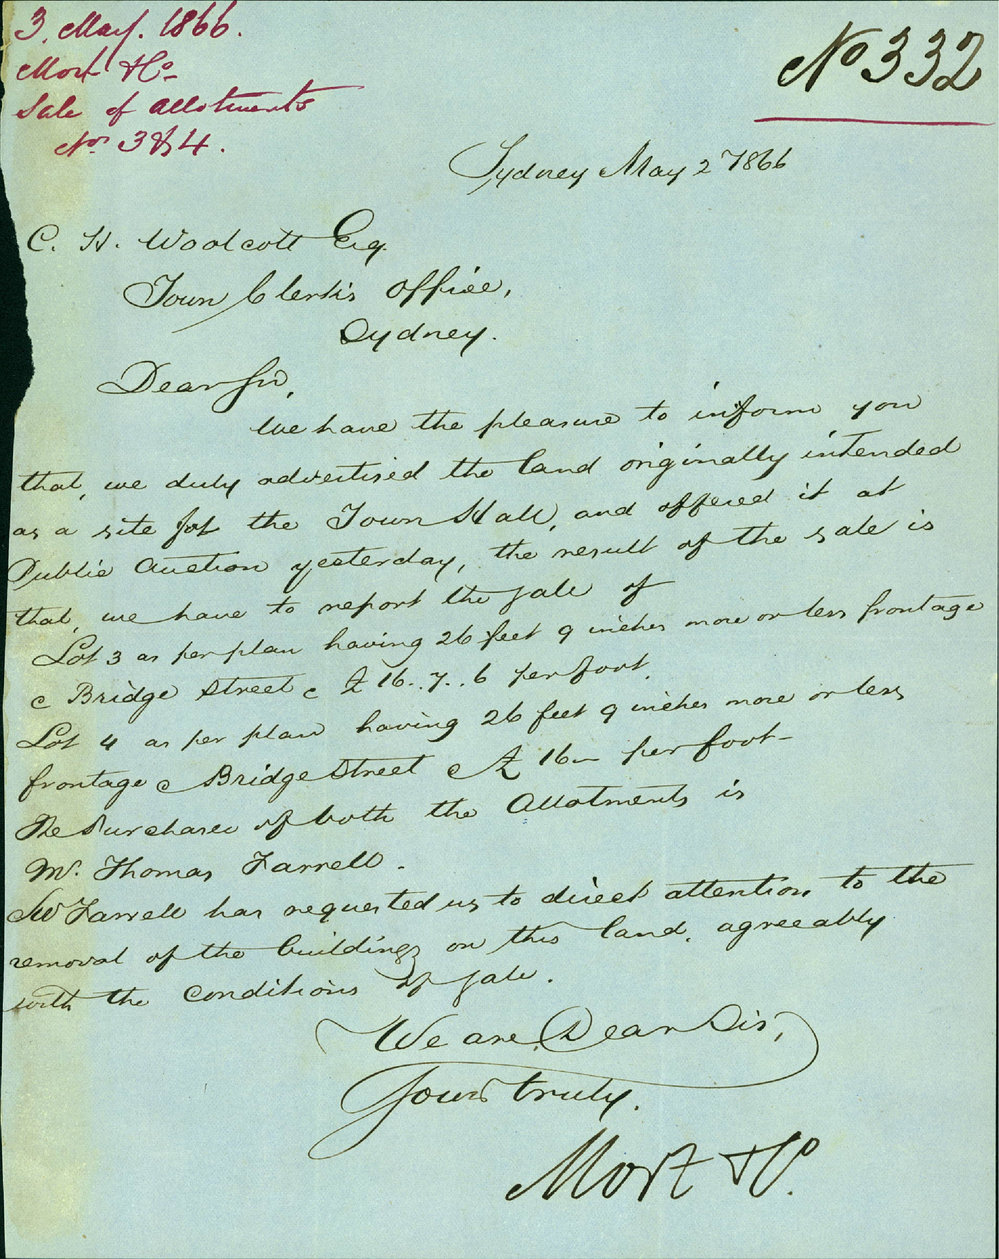 3. May. 1866.
Mort & Co
Sale of allotments
Nos 3 & 4.
No 332
Sydney May 2 1866
C. H. Woolcott Esq.
Town Clerk's Office,
Sydney.
Dear Sir,
We have the pleasure to inform you
that, we duly advertised the land originally intended
as a site for the Town Hall, and offered it at
Public Auction yesterday, the result of the sale is
that, we have to report the sale of
Lot 3 as per plan having 26 feet 9 inches more or less frontage
c Bridge Street c £16..7..6 per foot.
Lot 4 as per plan having 26 feet 9 inches more or less
frontage c Bridge Street c £16 — per foot —
The Purchaser of both the Allotments is
Mr. Thomas Farrell.
Mr Farrell has requested us to direct attention to the
removal of the buildings on this land, agreeably
with the Conditions of sale.
We are, Dear Sir,
Yours truly.
Mort & Co.